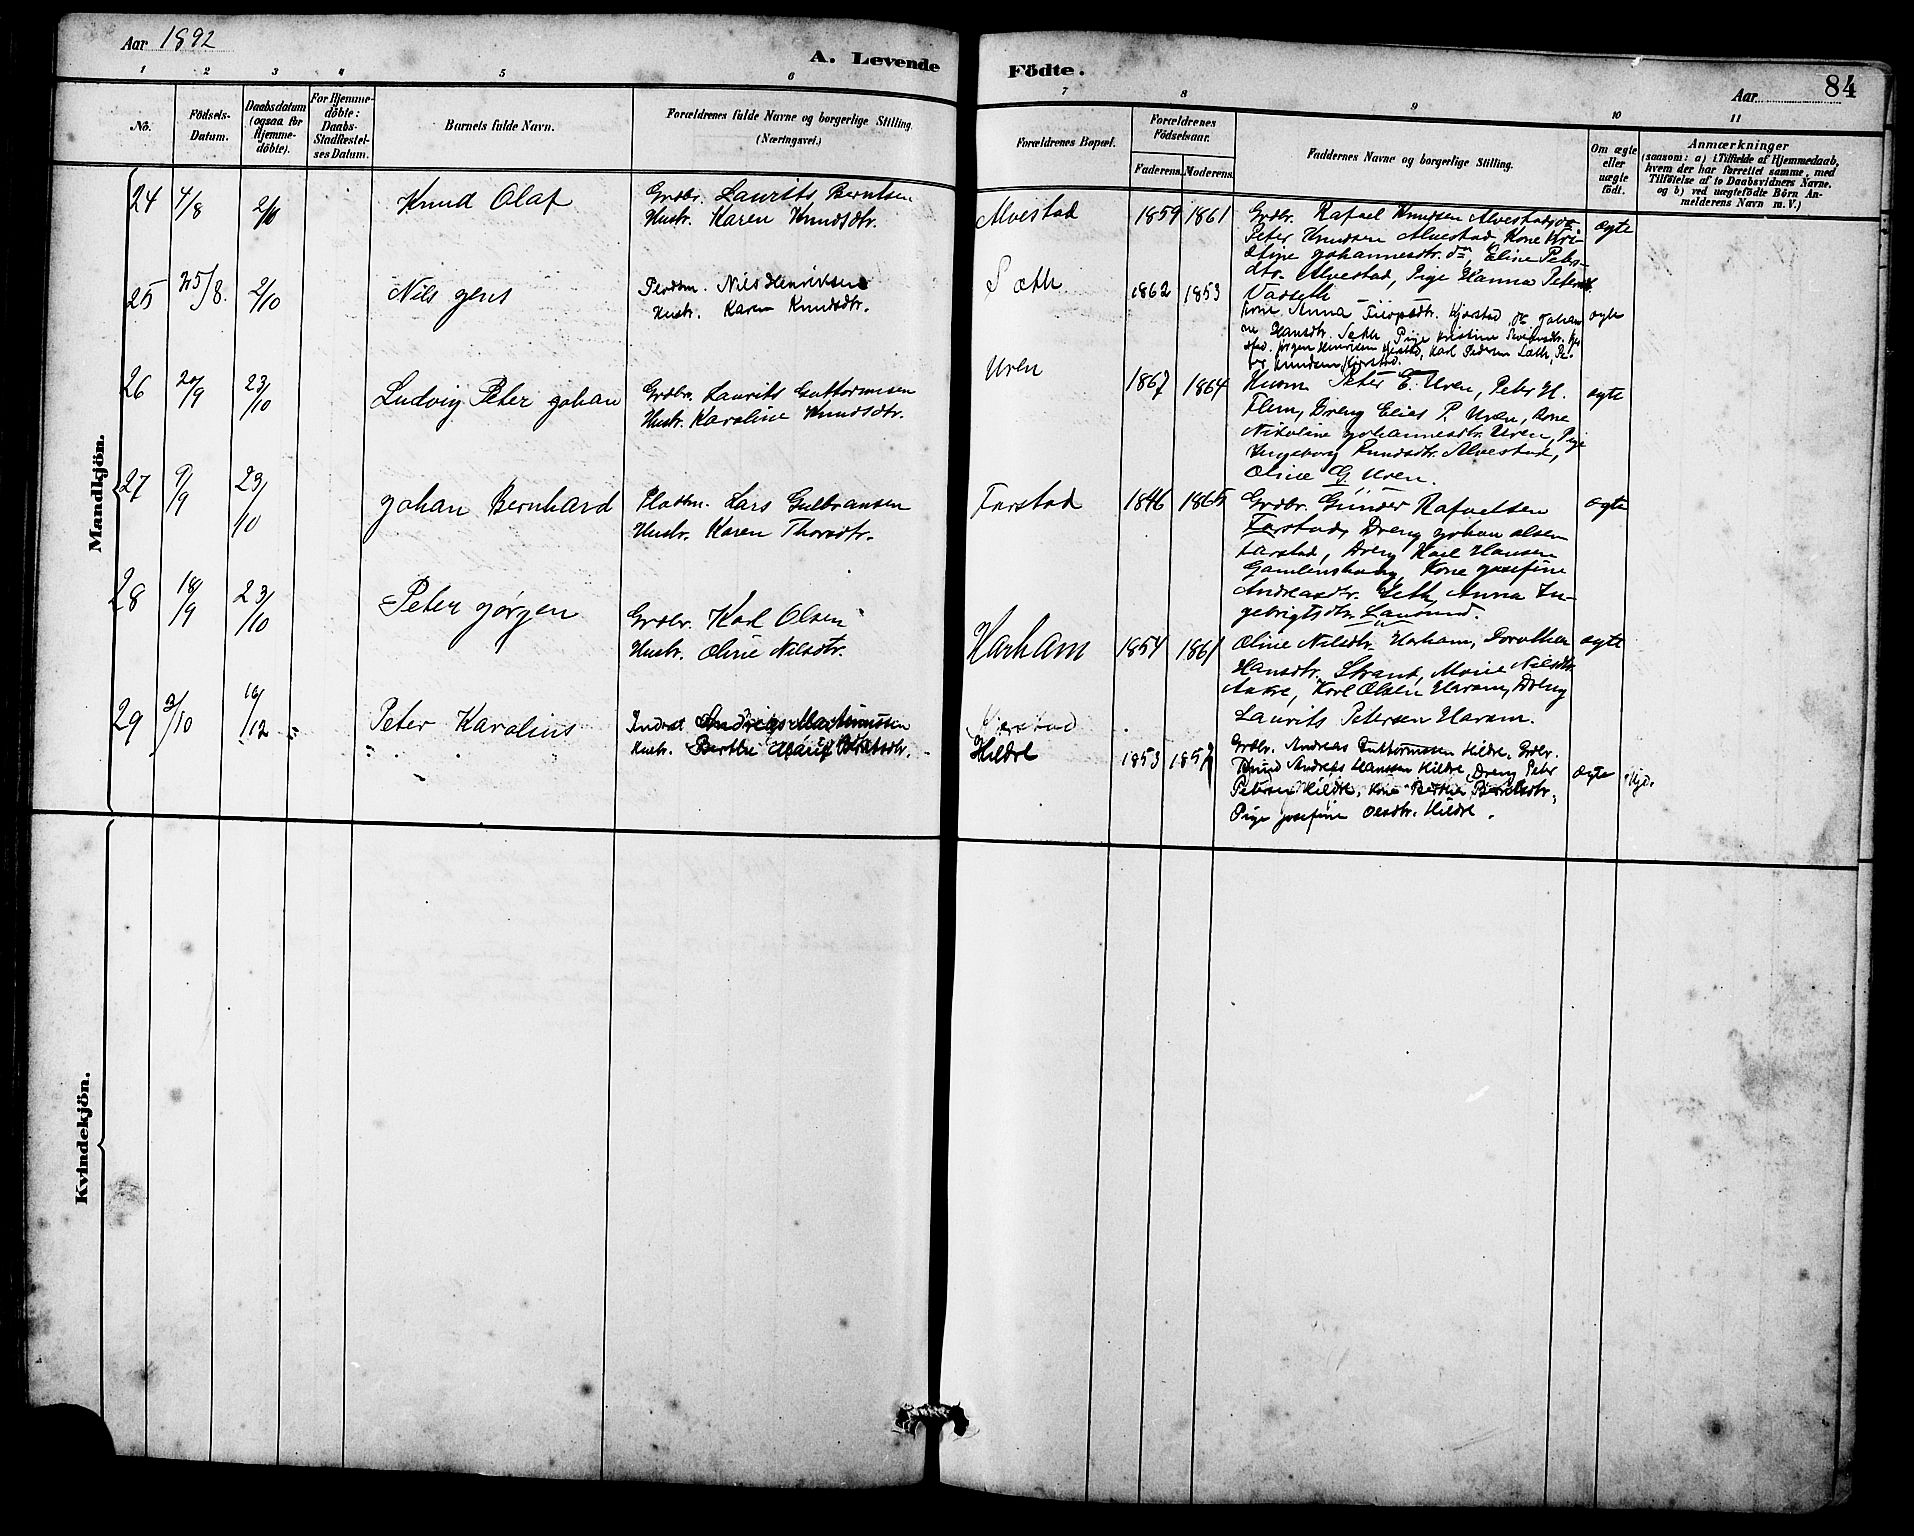 Aar 1892
A. Levende Födte.
Aar 84
1 2 3 4 5 6 7 8 9 10 11
No.
Födsels-Datum.
Daabsdatum (ogsaa for Hjemme-döbte).
For Hjemme-döbte: Daabs-Stadfæstel-ses Datum.
Barnets fulde Navn.
Forældrenes fulde Navne og borgerlige Stilling. (Næringsvei.)
Forældrenes Bopæl.
Forældrenes Födselsaar.
Faderens. Moderens.
Faddernes Navne og borgerlige Stilling.
Om ægte eller uægte födt.
Anmærkninger
(saasom: a) i Tilfælde af Hjemmedaab, hvem der har forrettet samme, med Tilföielse af to Daabsvidners Navne. og b) ved uægtefödte Börn An-melderens Navn m. V.)
Mandkjön.
24 4/8 2/10 Knud Olaf
Grdbr. Laurits Berntsen
Hustr. Karen Knudsdtr.
Alvestad 1859 1861
Grdbr. Rafael Knudsen Alvestad, og
Peter Knudsen Alvestad, Kone Kri-
stine Johannesdtr. do, Eline Peters-
dtr. Alvestad, Pige Hanna Petersdtr.
ægte
25 25/8. 2/10 Nils Jens
Pladsm. Nils Henriksen
Hustr. Karen Knudsdtr.
Sæth 1862 1853
Kone Anna
ægte
26 20/9 23/10 Ludvig Peter Johan
Grdbr. Laurits Guttormsen
Hustr. Karoline Knudsdtr.
Uren 1867 1864
Kusm Peter E. Uren, Peter H.
Flem, Dreng Elias P. Uren, Kone
Nikoline Johannesdtr. Uren, Pige
Ingeborg Knudsdtr. Alvestad,
Oline G. Uren.
ægte
27 9/9 23/10 Johan Bernhard
Pladsm. Lars Gulbransen
Hustr. Karen Thorsdtr.
Farstad 1846 1865
Grdbr. Gunder Rafaelsen
Farstad, Dreng Johan Olsen
Farstad, Dreng Karl Hansen
Kone Josefine
Andreasdtr. Seth, Anna In-
gebrigtsdtr.
ægte
28 18/9 23/10 Peter Jørgen
Grdbr. Karl Olsen
Hustr. Oline Nilsdtr.
Harham 1854 1861
Oline Nilsdtr. Harham, Dorothea
Hansdtr. Strand, Marie Nilsdtr.
Aakre, Karl Olsen Haram, Dreng
Laurits Petersen Haram.
ægte
29 3/10 Peter Karolius
Inderst Andreas Martinussen
Hustr. Berthe Marie
Hildre 1853
Grdbr. Andreas Guttormssen Hildre, Grdbr.
Knud Andreas Hanssen Hildre, Dreng Peter
Petersen Hildre, Kone Berthe
Pige Josefine Olsdtr. Hildre.
ægte
Kvindekjön.